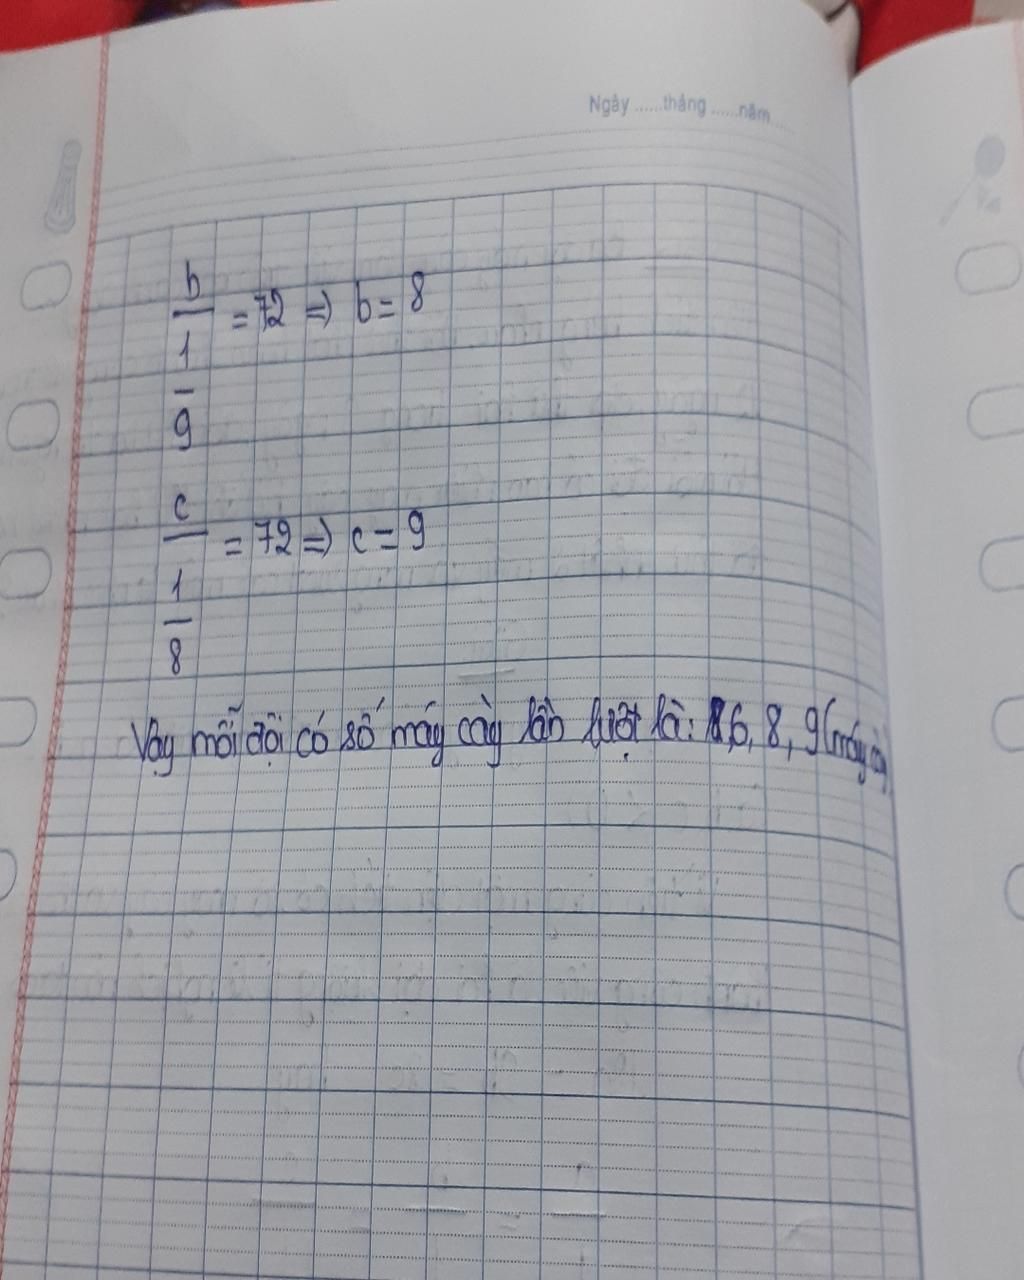 Ngày ......tháng ......năm......
b/(1/9) = 72 => b = 8
c/(1/8) = 72 => c = 9
Vậy mỗi đội có số máy cày lần lượt là: 6, 8, 9 (máy cày)